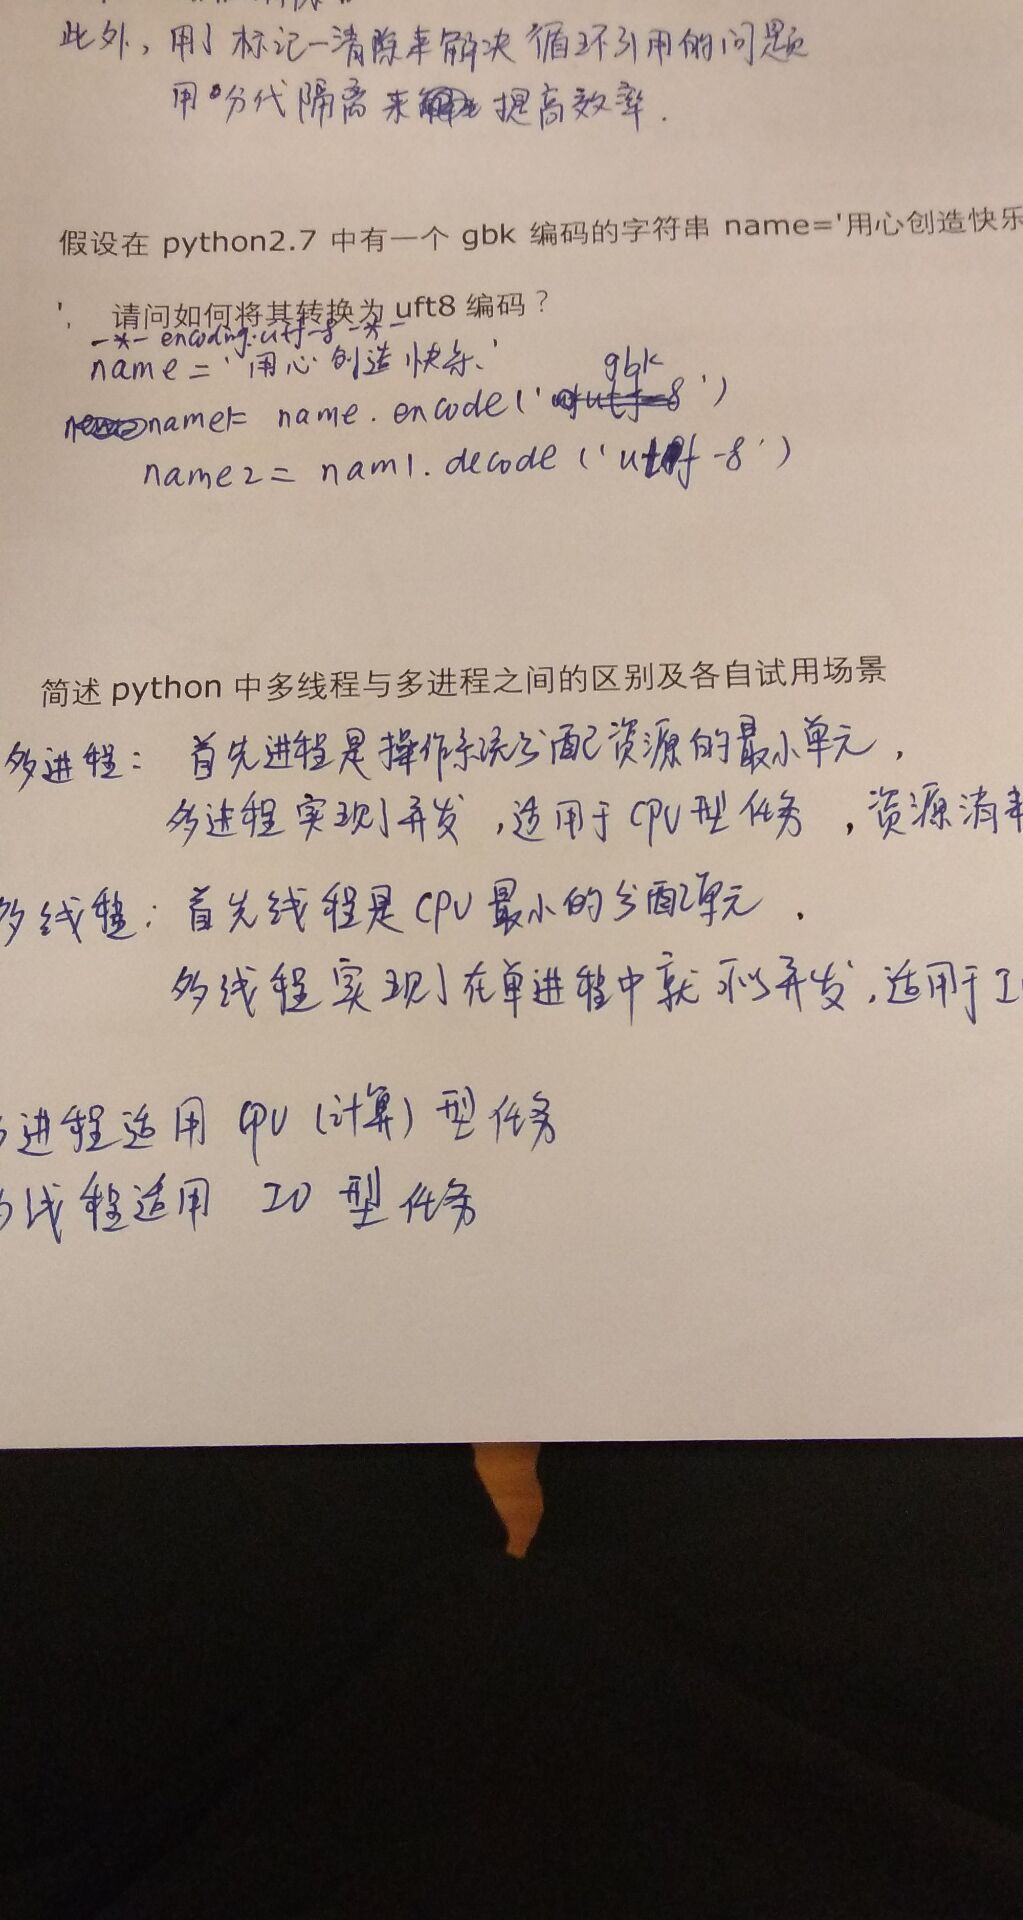 此外，用了标记-清除来解决循环引用的问题
用分代隔离来提高效率.
假设在 python2.7 中有一个 gbk 编码的字符串 name='用心创造快乐
'，请问如何将其转换为 uft8 编码？
-*- encoding:utf-8 -*-
name = '用心创造快乐'
name1= name.encode('gbk')
name2 = nam1.decode('utf-8')
简述 python 中多线程与多进程之间的区别及各自试用场景
多进程：首先进程是操作系统分配资源的最小单元，
多进程实现了并发，适用于CPU型任务，资源消耗
多线程：首先线程是CPU最小的分配单元.
多线程实现了在单进程中就可以并发，适用于I
进程适用 CPU（计算）型任务
线程适用 IO 型任务